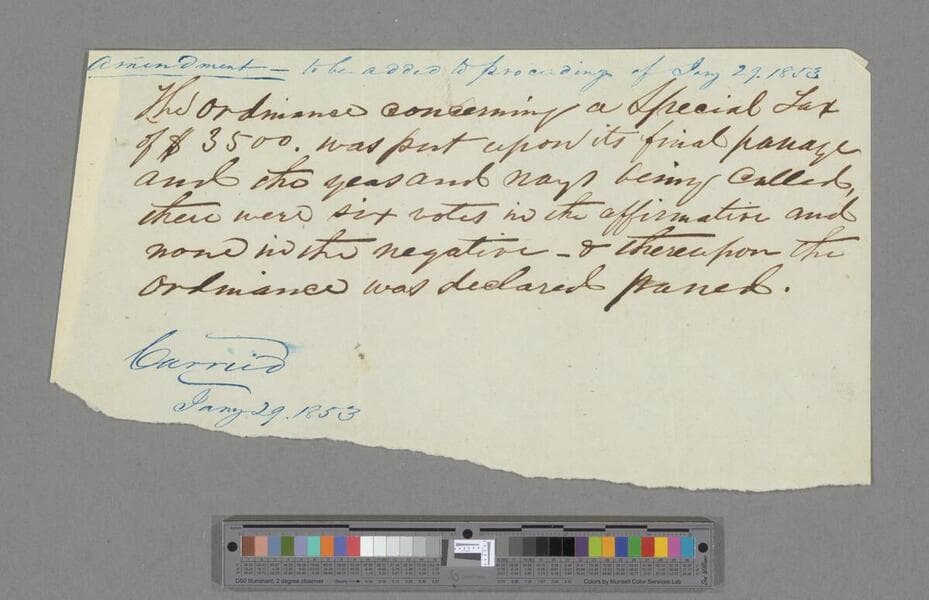 Amendment - to be added to proceedings of Jany 29. 1853
The Ordinance concerning a Special Tax
of $3500. was put upon its final passage
and the yeas and nays being called,
there were six votes in the affirmative and
none in the negative - & thereupon the
Ordinance was declared passed.
Carried
Jany 29. 1853
D50 Illuminant, 2 degree observer
Colors by Munsell Color Services Lab